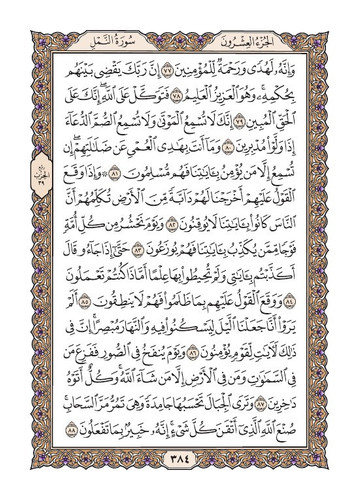 الجُزْءُ العِشْرُونَ
سُورَةُ النَّمْلِ
وَإِنَّهُۥ لَهُدًى وَرَحْمَةٌ لِّلْمُؤْمِنِينَ ٧٧ إِنَّ رَبَّكَ يَقْضِى بَيْنَهُم
بِحُكْمِهِۦ وَهُوَ ٱلْعَزِيزُ ٱلْعَلِيمُ ٧٨ فَتَوَكَّلْ عَلَى ٱللَّهِ إِنَّكَ عَلَى
ٱلْحَقِّ ٱلْمُبِينِ ٧٩ إِنَّكَ لَا تُسْمِعُ ٱلْمَوْتَىٰ وَلَا تُسْمِعُ ٱلصُّمَّ ٱلدُّعَآءَ
إِذَا وَلَّوْا۟ مُدْبِرِينَ ٨٠ وَمَآ أَنتَ بِهَـٰدِى ٱلْعُمْىِ عَن ضَلَـٰلَتِهِمْ إِن
تُسْمِعُ إِلَّا مَن يُؤْمِنُ بِـَٔايَـٰتِنَا فَهُم مُّسْلِمُونَ ٨١ وَإِذَا وَقَعَ
ٱلْقَوْلُ عَلَيْهِمْ أَخْرَجْنَا لَهُمْ دَآبَّةً مِّنَ ٱلْأَرْضِ تُكَلِّمُهُمْ أَنَّ
ٱلنَّاسَ كَانُوا۟ بِـَٔايَـٰتِنَا لَا يُوقِنُونَ ٨٢ وَيَوْمَ نَحْشُرُ مِن كُلِّ أُمَّةٍ
فَوْجًا مِّمَّن يُكَذِّبُ بِـَٔايَـٰتِنَا فَهُمْ يُوزَعُونَ ٨٣ حَتَّىٰٓ إِذَا جَآءُو قَالَ
أَكَذَّبْتُم بِـَٔايَـٰتِى وَلَمْ تُحِيطُوا۟ بِهَا عِلْمًا أَمَّاذَا كُنتُمْ تَعْمَلُونَ
٨٤ وَوَقَعَ ٱلْقَوْلُ عَلَيْهِم بِمَا ظَلَمُوا۟ فَهُمْ لَا يَنطِقُونَ ٨٥ أَلَمْ
يَرَوْا۟ أَنَّا جَعَلْنَا ٱلَّيْلَ لِيَسْكُنُوا۟ فِيهِ وَٱلنَّهَارَ مُبْصِرًا إِنَّ فِى
ذَٰلِكَ لَـَٔايَـٰتٍ لِّقَوْمٍ يُؤْمِنُونَ ٨٦ وَيَوْمَ يُنفَخُ فِى ٱلصُّورِ فَفَزِعَ مَن
فِى ٱلسَّمَـٰوَٰتِ وَمَن فِى ٱلْأَرْضِ إِلَّا مَن شَآءَ ٱللَّهُ وَكُلٌّ أَتَوْهُ
دَٰخِرِينَ ٨٧ وَتَرَى ٱلْجِبَالَ تَحْسَبُهَا جَامِدَةً وَهِىَ تَمُرُّ مَرَّ ٱلسَّحَابِ
صُنْعَ ٱللَّهِ ٱلَّذِىٓ أَتْقَنَ كُلَّ شَىْءٍ إِنَّهُۥ خَبِيرٌۢ بِمَا تَفْعَلُونَ ٨٨
٣٨٤